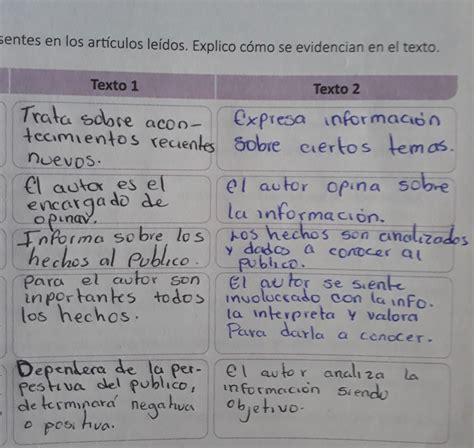 sentes en los artículos leídos. Explico cómo se evidencian en el texto.
Texto 1
Texto 2
Trata sobre acon-
tecimientos recientes
nuevos.
Expresa información
sobre ciertos temas.
El autor es el
encargado de
opinar.
el autor opina sobre
la información.
Informa sobre los
hechos al publico.
Los hechos son analizados
y dados a conocer al
público.
para el autor son
inportantes todos
los hechos.
El autor se siente
involucrado con la info.
la interpreta y valora
Para darla a conocer.
Dependera de la per-
pestiva del publico,
determinará negativa
o positiva.
el autor analiza la
información siendo
objetivo.